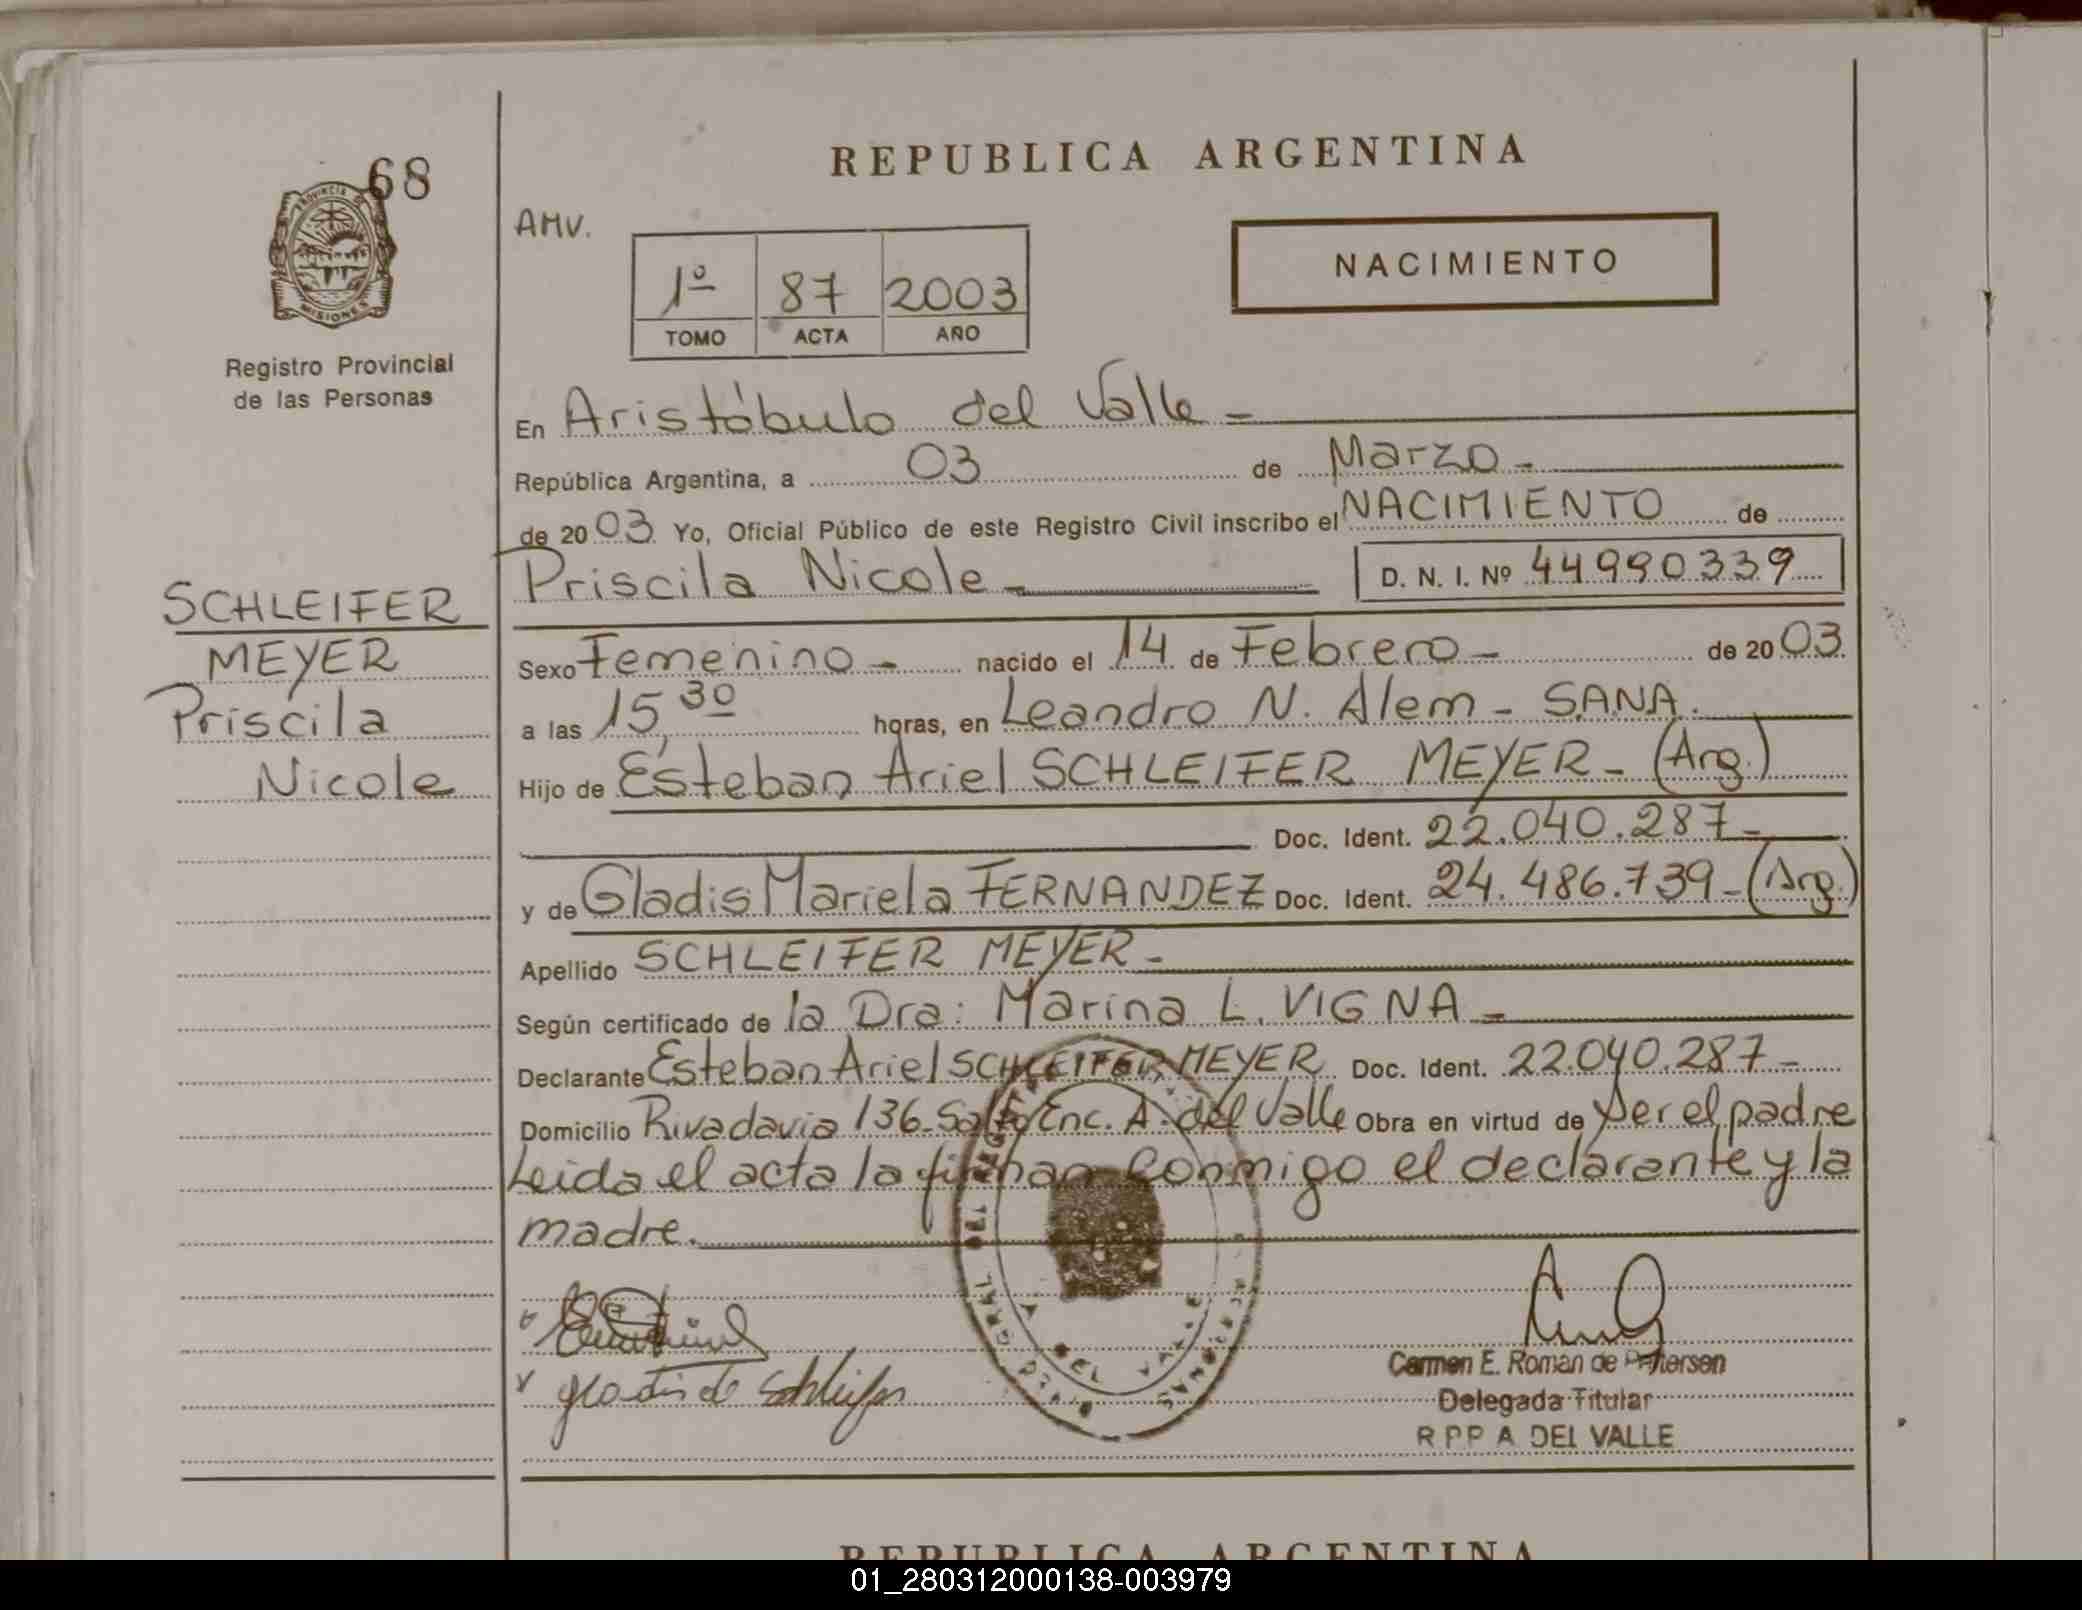 68
PROVINCIA DE
MISIONES
Registro Provincial
de las Personas
SCHLEIFER
MEYER
Priscila
Nicole
REPUBLICA ARGENTINA
AMV.
1º 87 2003
TOMO ACTA AÑO
NACIMIENTO
En Aristóbulo del Valle =
República Argentina, a 03 de Marzo -
de 2003 Yo, Oficial Público de este Registro Civil inscribo el NACIMIENTO de
Priscila Nicole - D. N. I. Nº 44990339
Sexo Femenino - nacido el 14 de Febrero - de 2003
a las 15,30 horas, en Leandro N. Alem - SANA.
Hijo de Esteban Ariel SCHLEIFER MEYER - (Arg.)
Doc. Ident. 22.040.287 -
y de Gladis Mariela FERNANDEZ Doc. Ident. 24.486.739 - (Arg.)
Apellido SCHLEIFER MEYER -
Según certificado de la Dra: Marina L. VIGNA =
Declarante Esteban Ariel SCHLEIFER MEYER Doc. Ident. 22.040.287 -
Domicilio Rivadavia 136 - Salto Enc. A. del Valle Obra en virtud de ser el padre
Leida el acta la firman conmigo el declarante y la
madre.
Gladis de Schleifer
Carmen E. Roman de
Delegada Titular
R P P A DEL VALLE
A DEL VALLE
REPUBLICA ARGENTINA
01_280312000138-003979